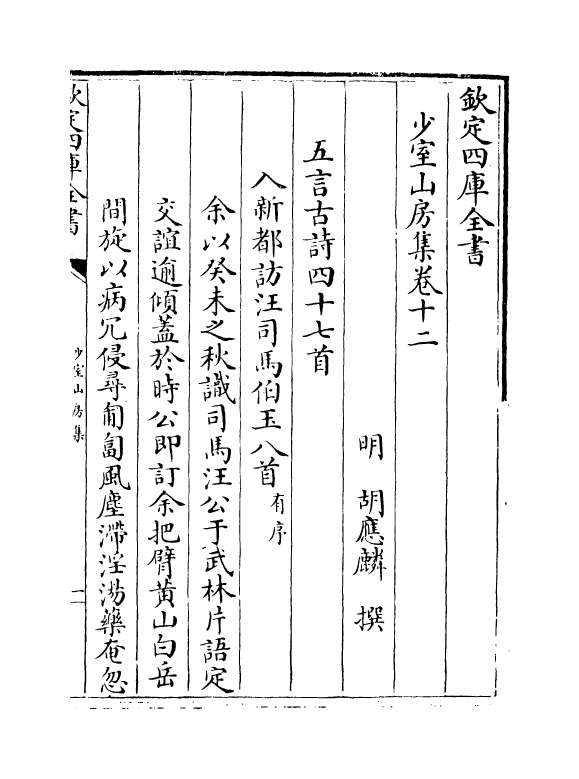 欽定四庫全書
少室山房集卷十二
明 胡應麟 撰
五言古詩四十七首
入新都訪汪司馬伯玉八首有序
余以癸未之秋識司馬汪公于武林片語定
交誼逾傾蓋於時公即訂余把臂黄山白岳
間旋以病冗侵尋匍匐風塵滯淫湯藥奄忽
欽定四庫全書
少室山房集
一